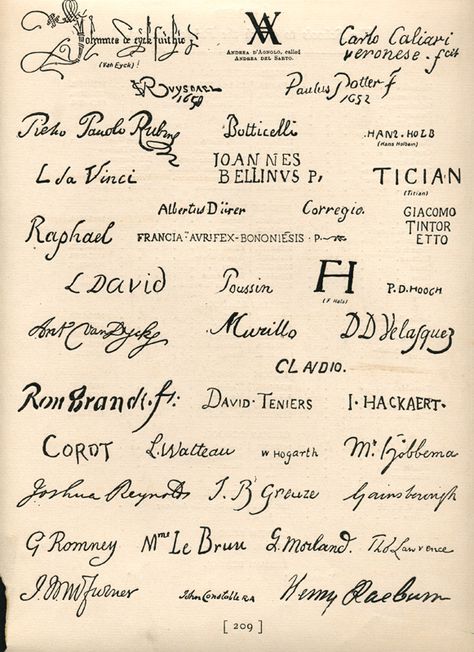 Johannes de eyck fuit hic
(Van Eyck)!
VA
ANDREA D'AGNOLO, called
ANDREA DEL SARTO.
Carlo Caliari
veronese. fcit
RUYSDAEL
1650
Paulus Potter f
1652
Pietro Pauolo Rubens
Botticelli
.HANS. HOLB
(Hans Holbein)
L da Vinci
IOANNES
BELLINVS P,
TICIAN
(Titian)
Albertus Dürer
Corregio.
GIACOMO
TINTOR
ETTO
Raphael
FRANCIA AVRIFEX-BONONIĒSIS P
L DAVID
Poussin
FH
(F. Hals)
P. D. HOOCH
Ant Van Dyck
Murillo
D D Velasquez
CLAUDIO.
Rembrandt. ft:
DAVID TENIERS
I. HACKAERT.
COROT
L. Watteau
W HOGARTH
Mr Hobbema
Joshua Reynolds
J. B Greuze
Gainsborough
G Romney
Mme Le Brun
G. Morland.
Tho Lawrence
J. M W Turner
John Constable RA
Henry Raeburn
[ 209 ]